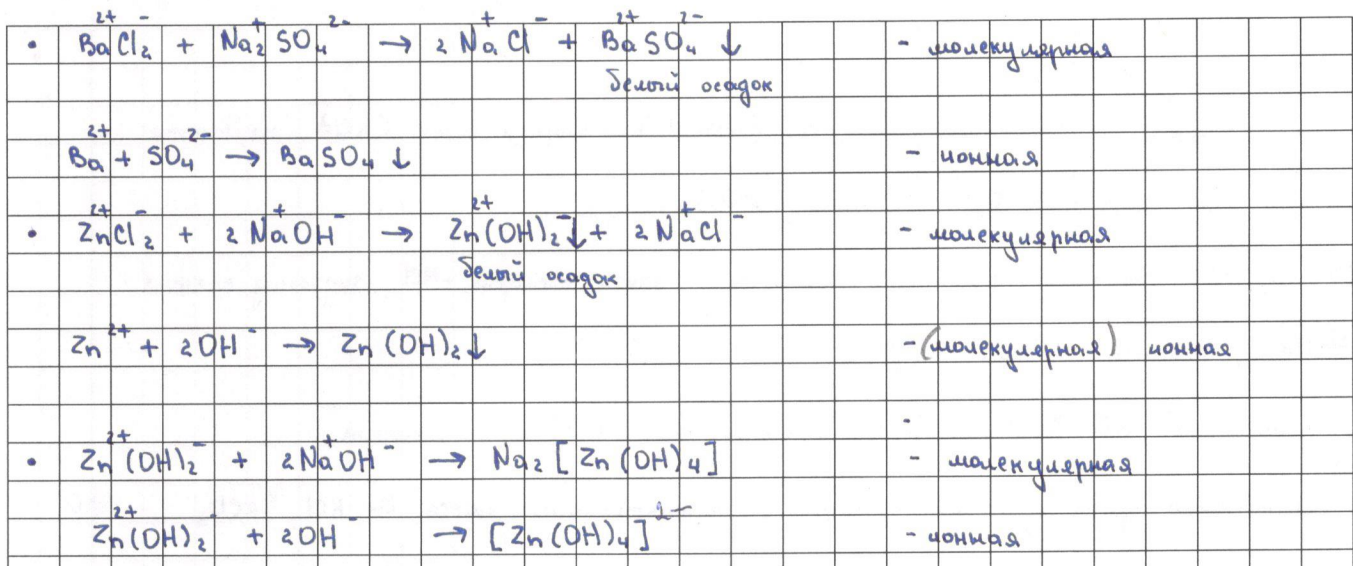 • Ba²⁺Cl₂⁻ + Na₂⁺SO₄²⁻ → 2 Na⁺Cl⁻ + Ba²⁺SO₄²⁻ ↓ - молекулярная
белый осадок
Ba²⁺ + SO₄²⁻ → BaSO₄ ↓ - ионная
• Zn²⁺Cl₂⁻ + 2 Na⁺OH⁻ → Zn²⁺(OH)₂⁻↓ + 2 Na⁺Cl⁻ - молекулярная
белый осадок
Zn²⁺ + 2OH⁻ → Zn(OH)₂↓ - (молекулярная) ионная
• Zn²⁺(OH)₂⁻ + 2Na⁺OH⁻ → Na₂[Zn(OH)₄] - молекулярная
Zn²⁺(OH)₂⁻ + 2OH⁻ → [Zn(OH)₄]²⁻ - ионная